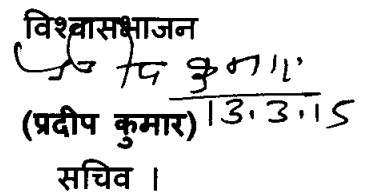 विश्वासभाजन
प्रदीप कुमार
13.3.15
(प्रदीप कुमार)
सचिव ।